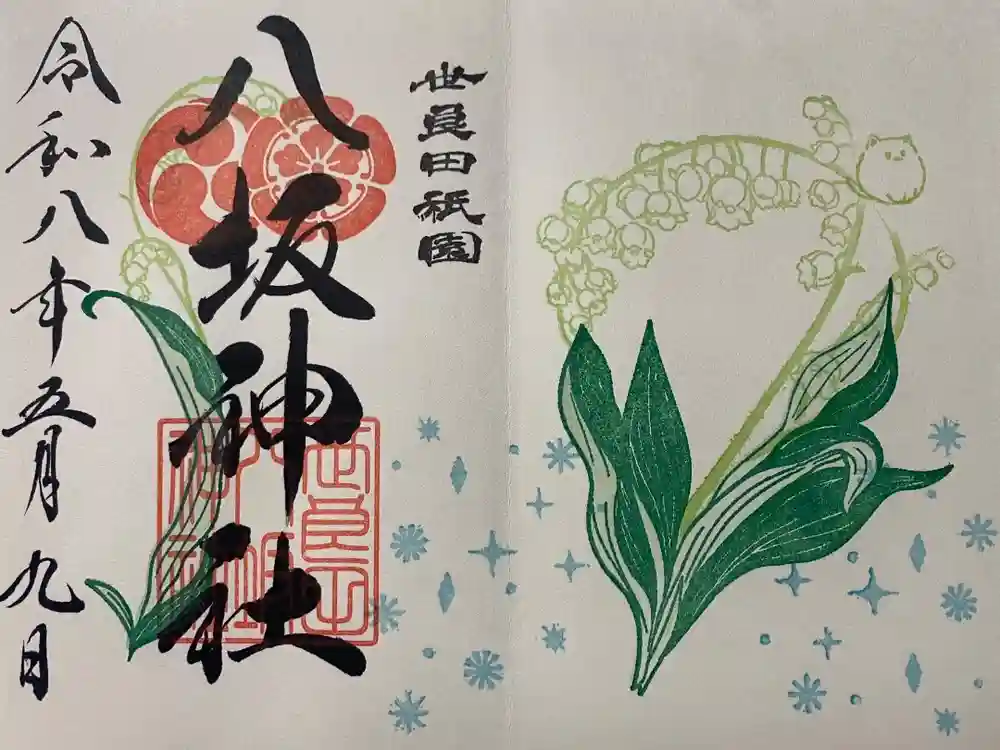 世良田祇園
八坂神社
令和八年五月九日